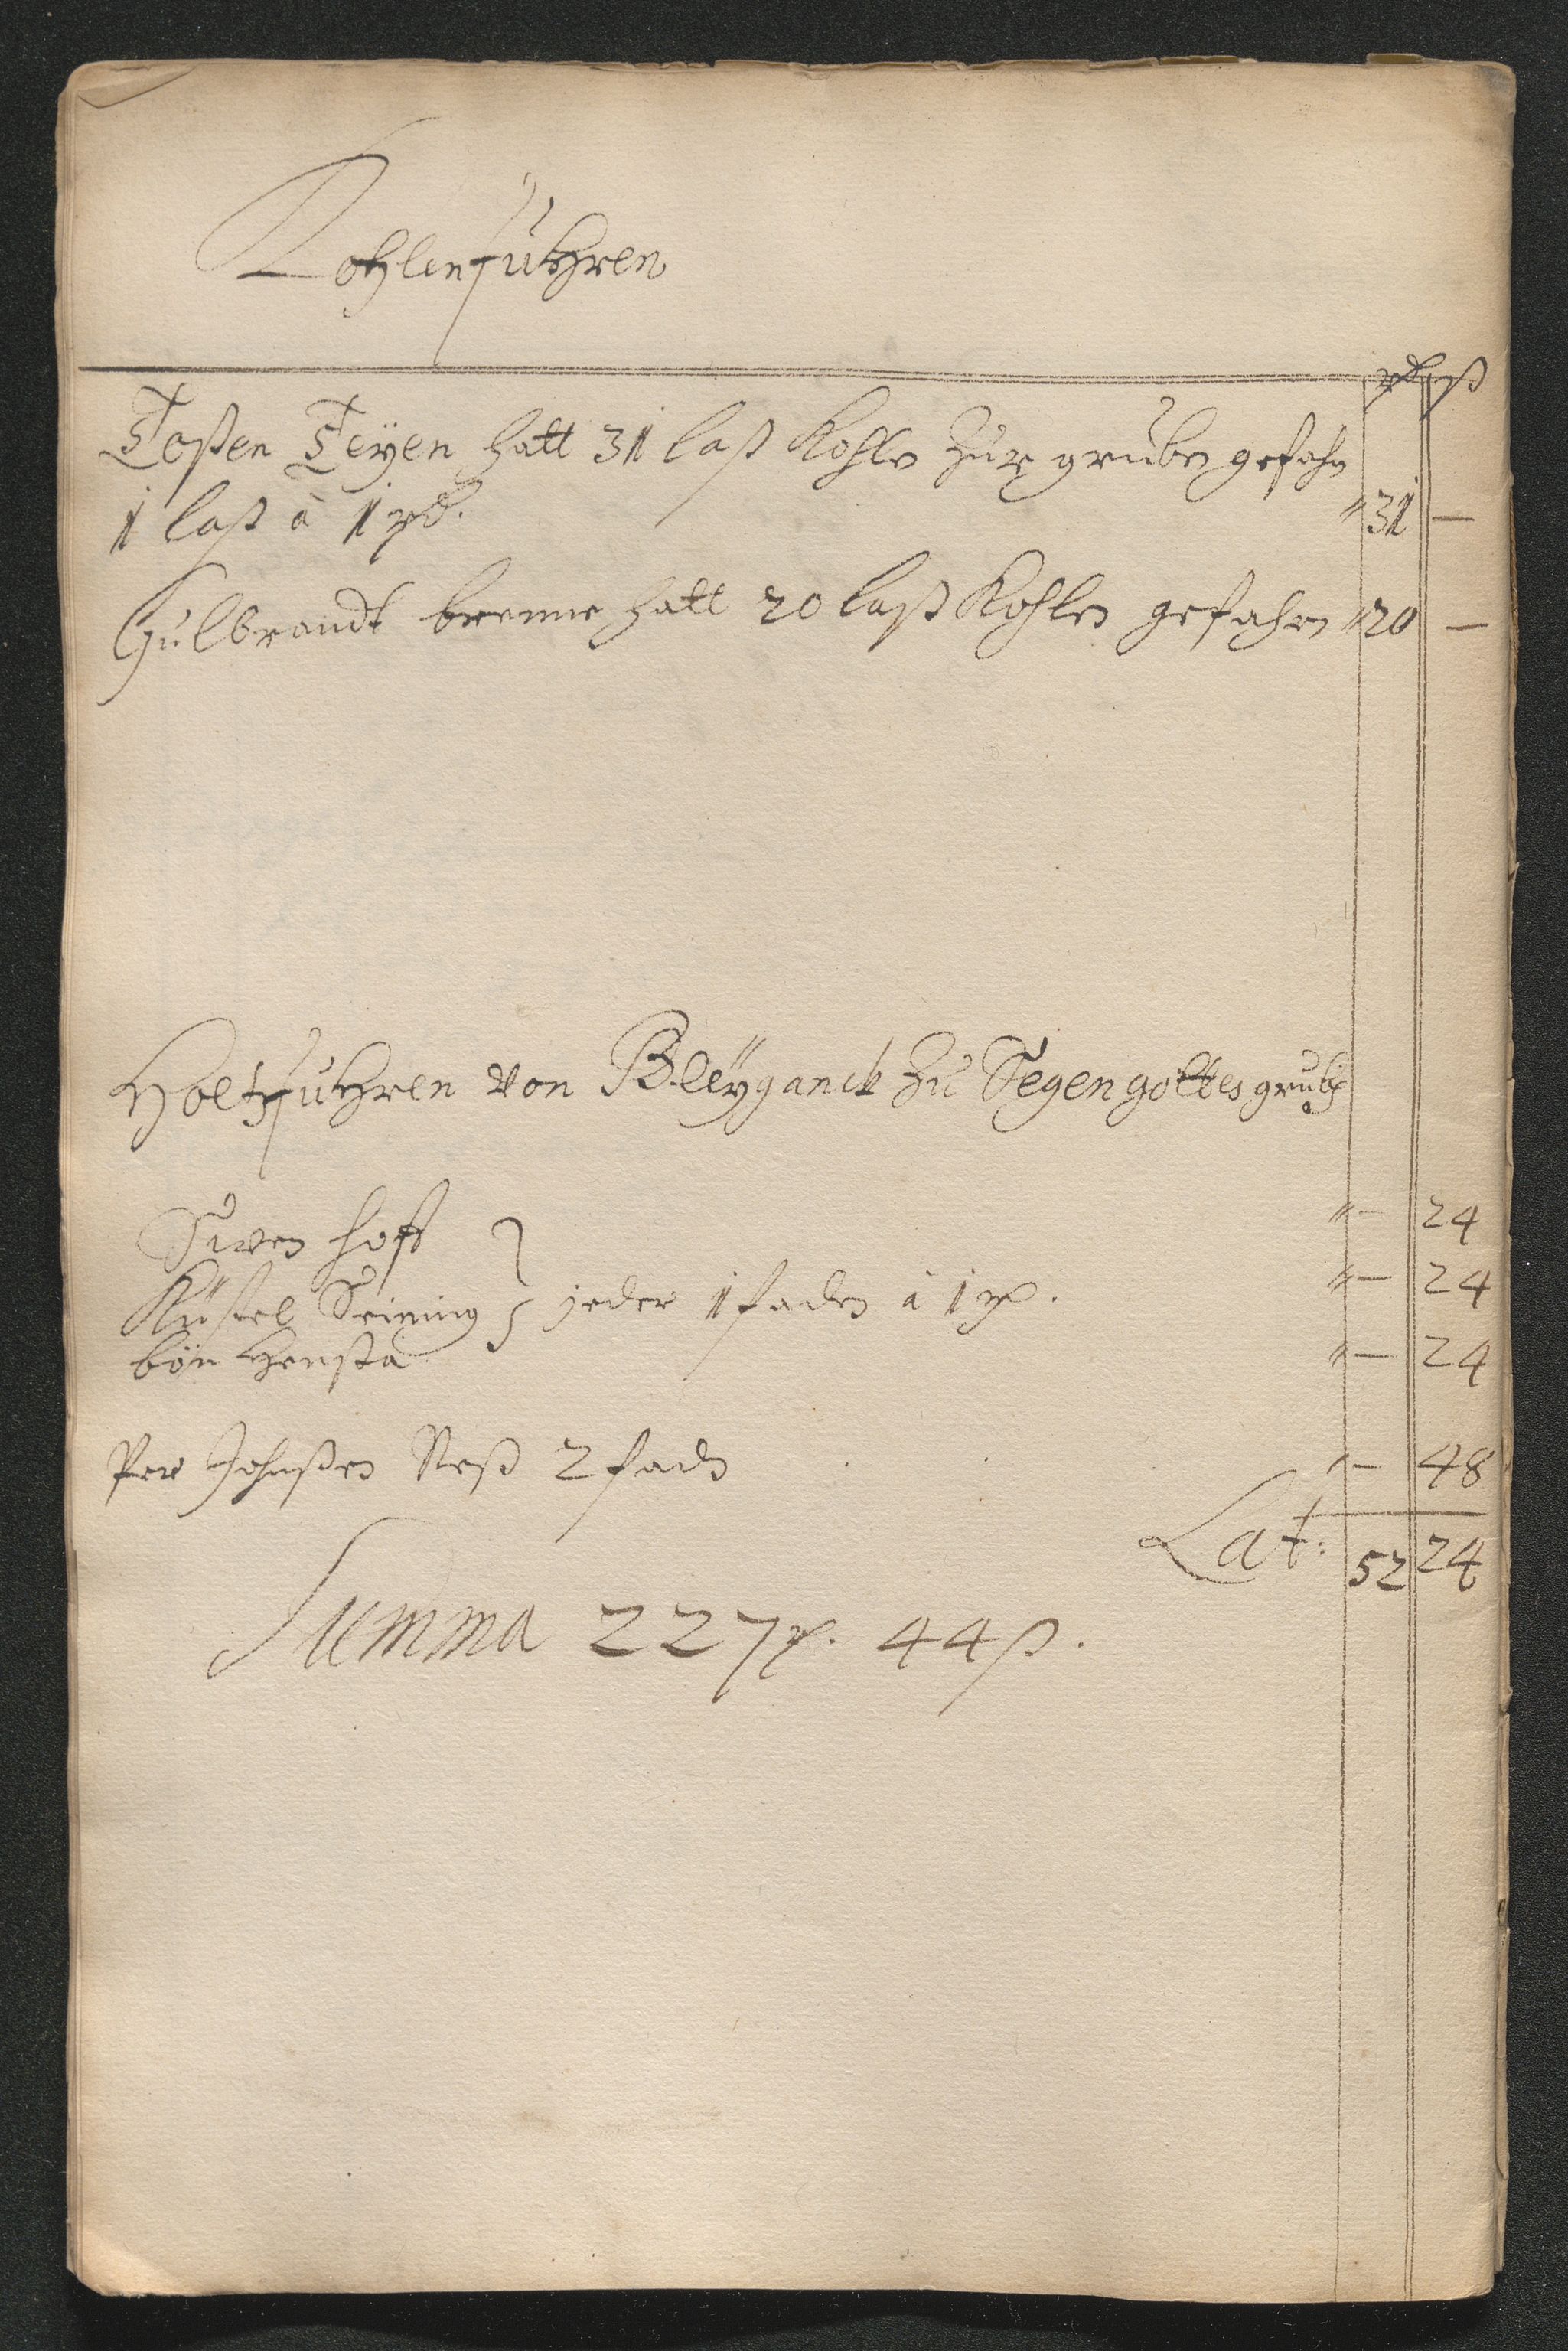 Kohlenfuhren
rd ß
Toßen Teÿen hatt 31 last Kohln zur gruben gefahrn
1 last à 1 rd. " 31 —
Gulbrandt brenne hatt 20 last Kohlen gefahren " 20 —
Holtzfuhren von Bleÿganck zu Segen gottes grube
Swen hoff " — 24
Küstel } jeder 1 faden à 1 rd. " — 24
" — 24
Per Johnßen Neß 2 fadn " — 48
Lat: 52 24
Summa 227 rd. 44 ß.